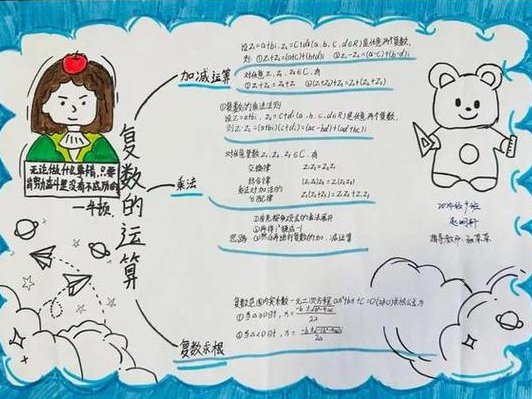 复数的运算
无论做什么事情,只要
肯努力奋斗,是没有不成功的
—牛顿
加减运算
设Z₁=a+bi,Z₂=C+di(a,b,c,d∈R)是任意两个复数,
则:①Z₁+Z₂=(a+c)+(b+d)i ②Z₁-Z₂=(a-c)+(b-d)i
对任意Z₁,Z₂,Z₃∈C,有
①Z₁+Z₂=Z₂+Z₁ ②(Z₁+Z₂)+Z₃=Z₁+(Z₂+Z₃)
乘法
①复数的乘法法则
设Z₁=a+bi,Z₂=C+di(a,b,c,d∈R)是任意两个复数,
则Z₁·Z₂=(a+bi)(c+di)=(ac-bd)+(ad+bc)i
对任意复数Z₁,Z₂,Z₃∈C,有
交换律 Z₁Z₂=Z₂Z₁
结合律 (Z₁Z₂)Z₃=Z₁(Z₂Z₃)
乘法对加法的
分配律 Z₁(Z₂+Z₃)=Z₁Z₂+Z₁Z₃
①首先按多项式的乘法展开
②再将i²换成-1
思路 ③然后再进行复数的加、减运算
复数求根
复数范围内实系数一元二次方程ax²+bx+c=0(a≠0)求根公式为
①当△≥0时,x=
②当△<0时,x=
指导教师: